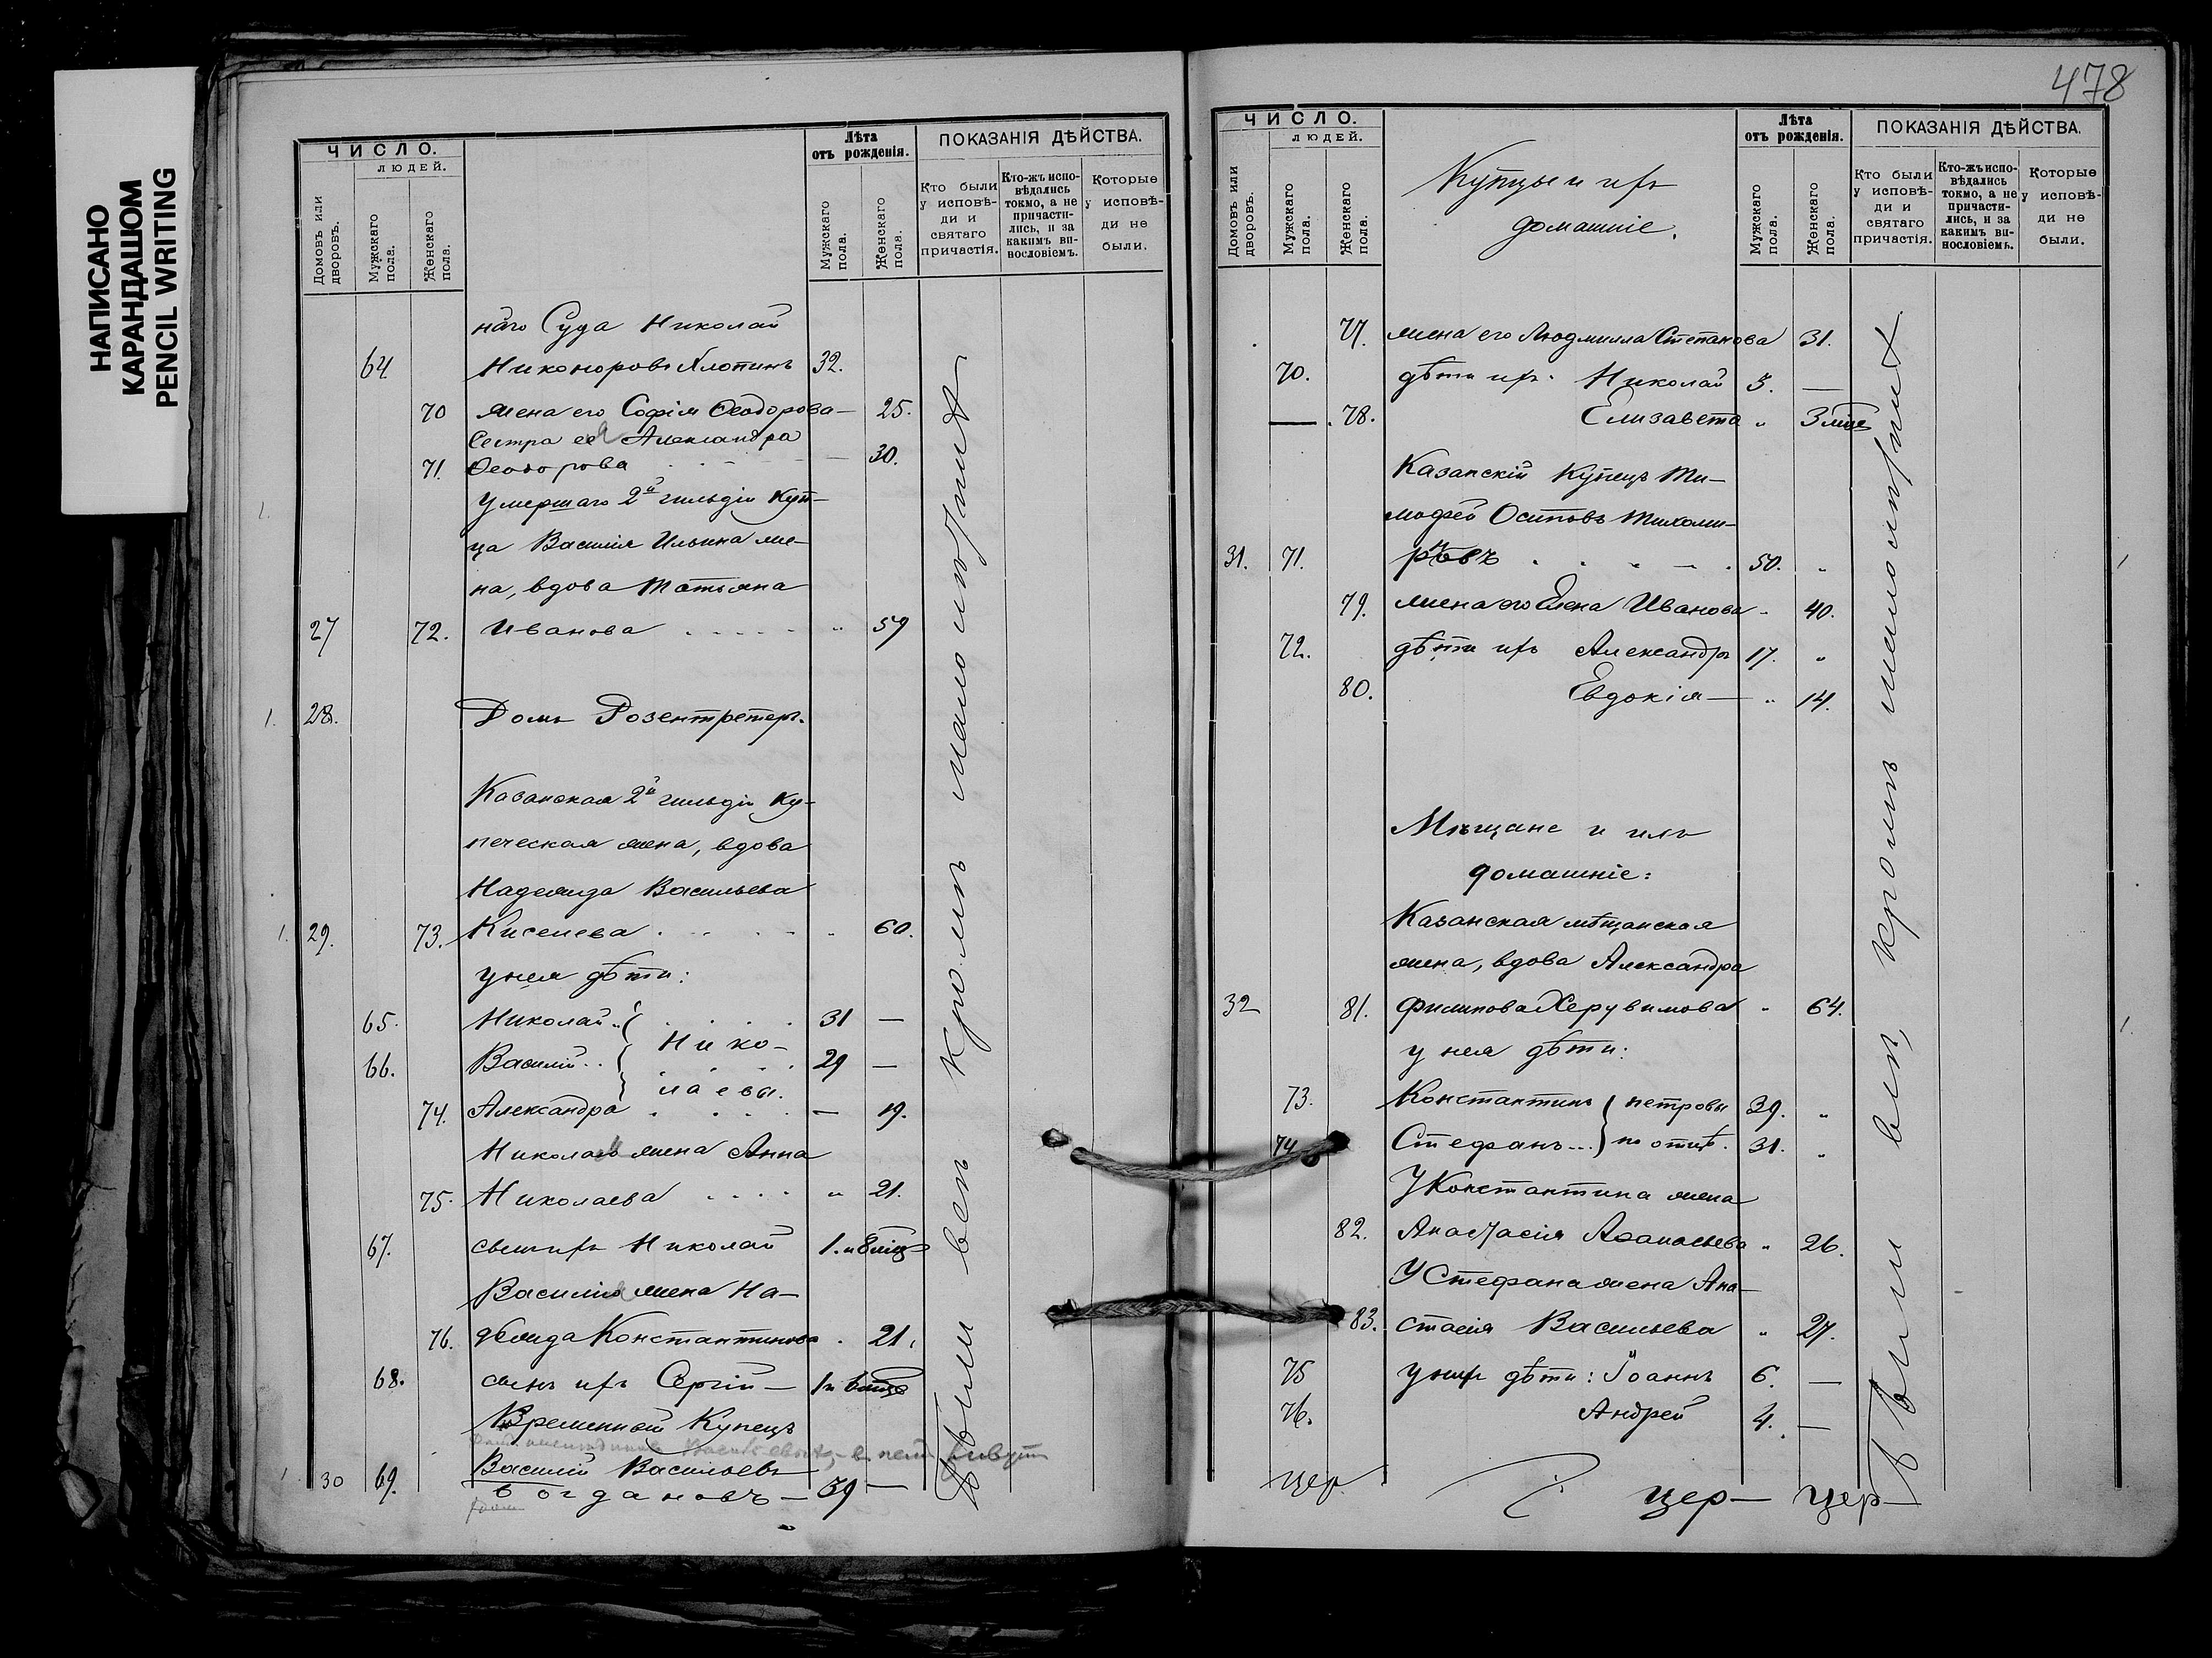 НАПИСАНО
КАРАНДАШОМ
PENCIL WRITING
ЧИСЛО.
ЛЮДЕЙ.
Домовъ или дворовъ.
Мужскаго пола.
Женскаго пола.
Лѣта отъ рожденія.
Мужскаго пола.
Женскаго пола.
ПОКАЗАНІЯ ДѢЙСТВА.
Кто были у исповѣди и святаго причастія.
Кто-жъ исповѣдались токмо, а не причастились, и за какимъ винословіемъ.
Которые у исповѣди не были.
наго Суда Николай
64 Никоноровъ Хлопинъ 32.
70 жена его Софія Ѳеодорова — 25.
Сестра ея Александра
71. Ѳеодорова — 30.
Умершаго 2й гильдіи Куп-
ца Василія Ильина же-
на, вдова Татьяна
27 72. Иванова „ 59
1. 28. Домъ Розентретеръ.
Казанская 2й гильдіи Ку-
печеская жена, вдова
Надежда Васильева
1. 29. 73. Киселева „ 60.
у нея дѣти:
65. Николай 31 —
Нико-
66. Василій 29 —
лаевы.
74. Александра — 19.
Николая жена Анна
75. Николаева „ 21.
67. сынъ ихъ Николай 1. и 8 мѣц
Василія жена На-
76. дежда Константинова 21.
68. сынъ ихъ Сергій — 1 и 6 мѣц
Временный Купецъ
живутъ
1 30 69. Василій Васильевъ
Богдановъ — 39 —
Были всѣ кромѣ малолѣтних
478
ЧИСЛО.
ЛЮДЕЙ.
Домовъ или дворовъ.
Мужскаго пола.
Женскаго пола.
Купцы и ихъ
домашніе.
Лѣта отъ рожденія.
Мужскаго пола.
Женскаго пола.
ПОКАЗАНІЯ ДѢЙСТВА.
Кто были у исповѣди и святаго причастія.
Кто-жъ исповѣдались токмо, а не причастились, и за какимъ винословіемъ.
Которые у исповѣди не были.
77. жена его Людмилла Степанова 31.
70. дѣти ихъ: Николай 3. —
— 78. Елизавета „ 3 мѣц
Казанскій Купецъ Ти-
мофей Осиповъ Тихоми-
31. 71. ровъ 50. „
79. жена его Елена Иванова 40.
72. дѣти ихъ Александръ 17. „
80. Евдокія — „ 14.
Мѣщане и ихъ
домашніе:
Казанская мѣщанская
жена, вдова Александра
32 81. Филипова Херувимова „ 64.
у нея дѣти:
73. Константинъ петровы 39. „
74 Стефанъ... по отцѣ. 31. „
У Константина жена
82. Анастасія Аѳанасьева „ 26.
У Стефана жена Ана-
83. стасія Васильева „ 27.
75 у них дѣти: Іоаннъ 6. —
76. Андрей 4. —
цер цер — цер —
Были всѣ, кромѣ малолѣтних